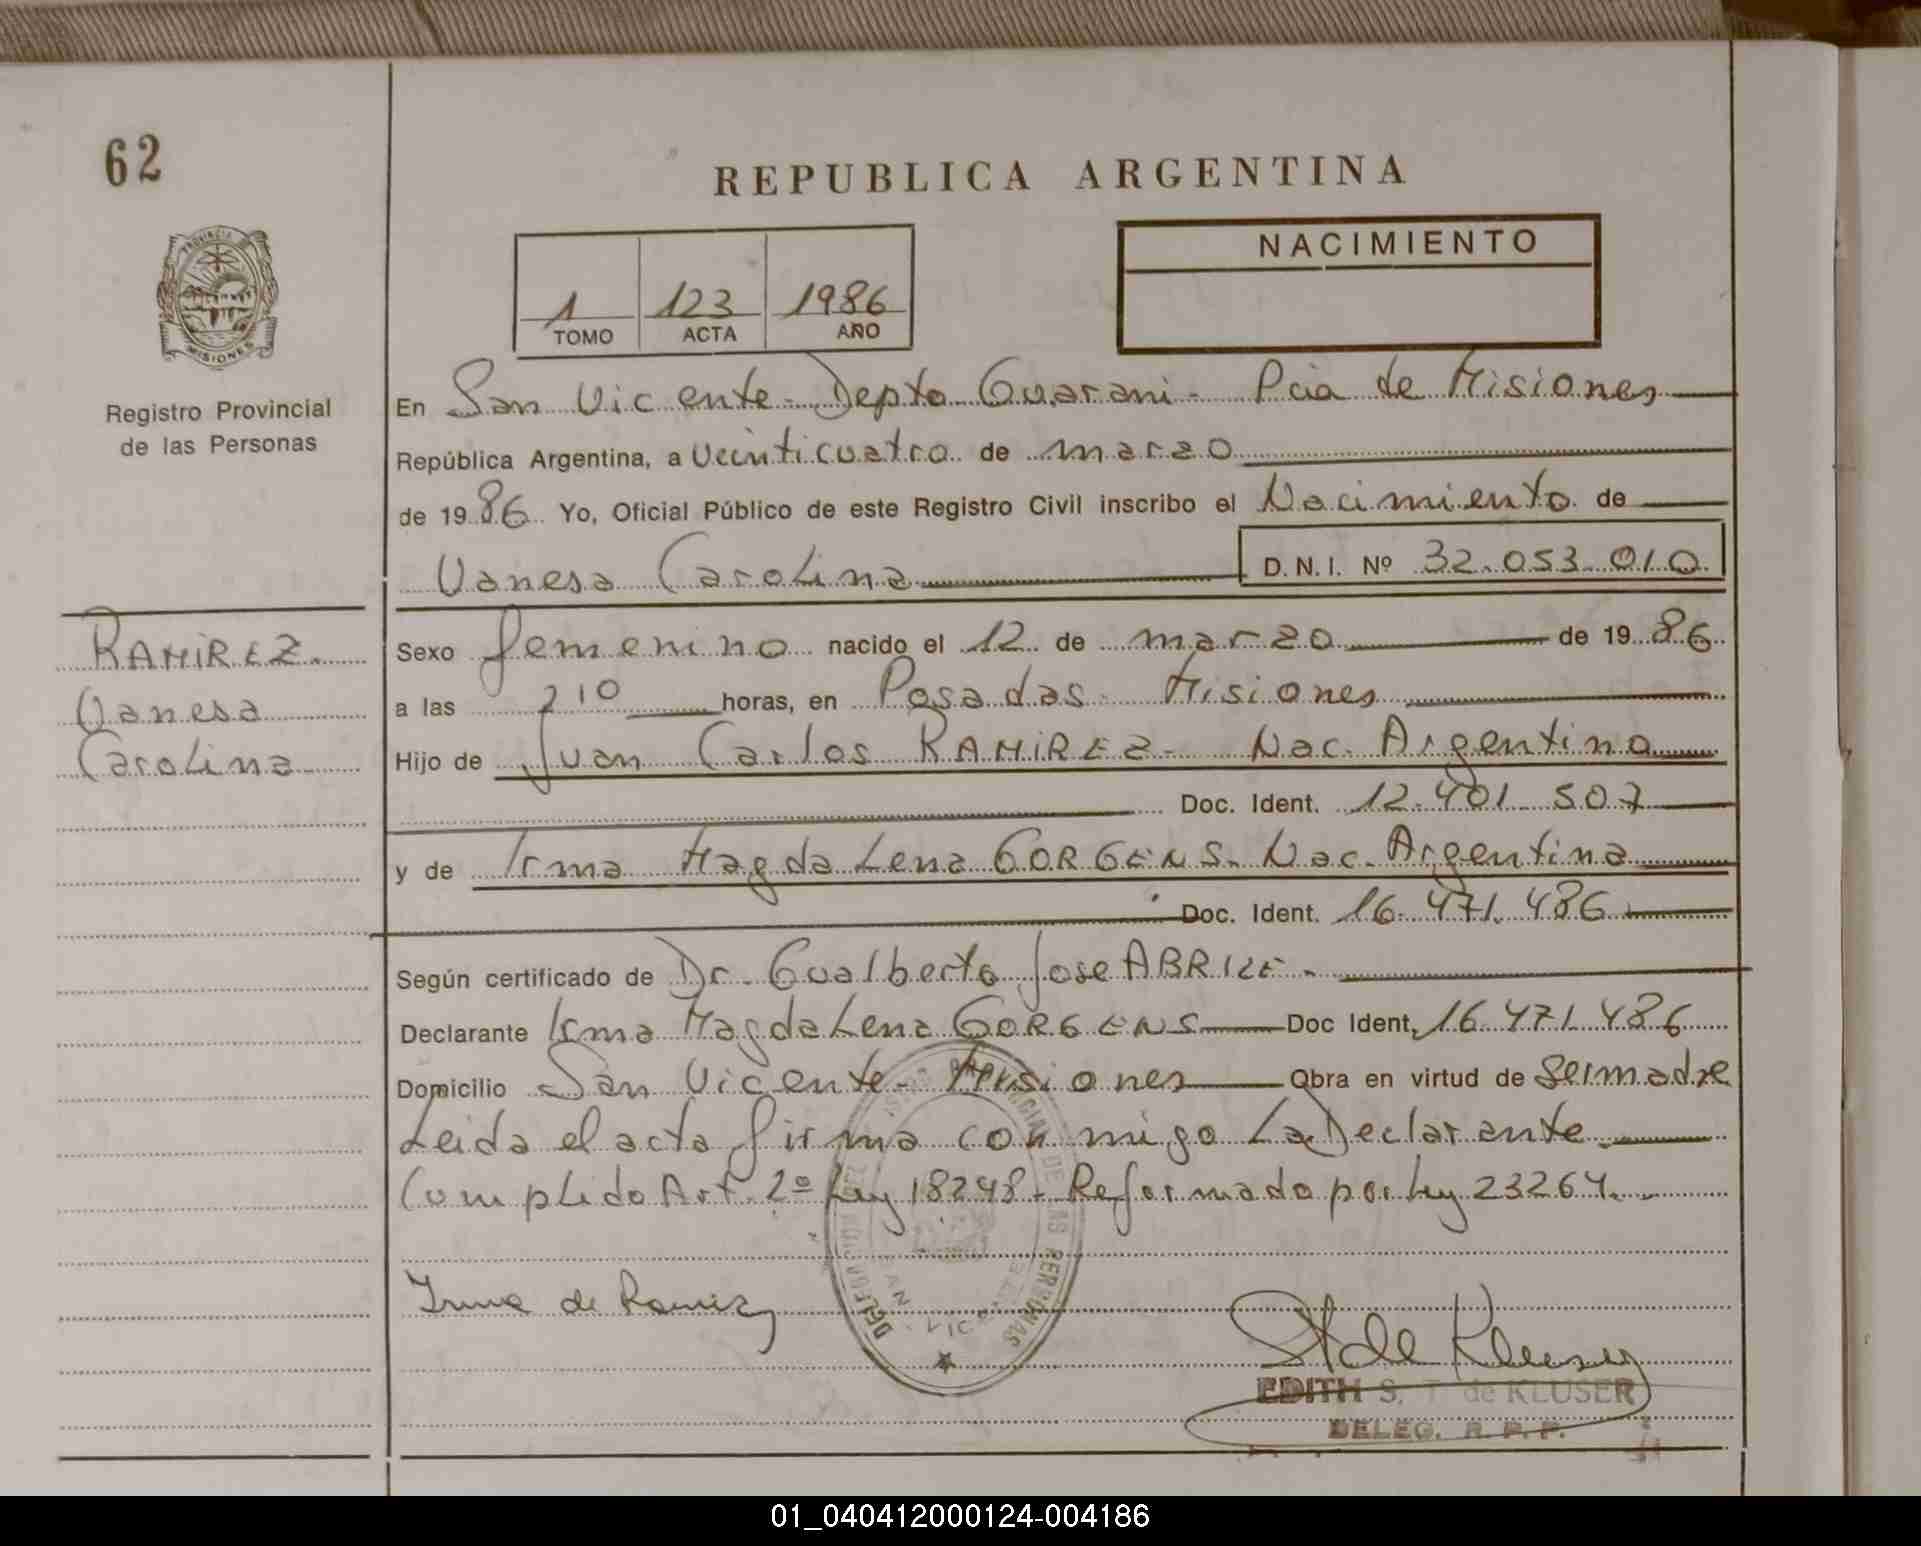 62
REPUBLICA ARGENTINA
PROVINCIA DE
MISIONES
Registro Provincial
de las Personas
1 123 1986
TOMO ACTA AÑO
NACIMIENTO
En San Vicente - Depto Guarani - Pcia de Misiones
República Argentina, a veinticuatro de marzo
de 1986 Yo, Oficial Público de este Registro Civil inscribo el Nacimiento de
Vanesa Carolina D.N.I. Nº 32.053.010
RAMIREZ
Vanesa
Carolina
Sexo femenino nacido el 12 de marzo de 1986
a las 210 horas, en Posadas - Misiones
Hijo de Juan Carlos RAMIREZ - Nac. Argentino
Doc. Ident. 12.401.507
y de Irma Magdalena GORGENS - Nac. Argentina
Doc. Ident. 16.471.486
Según certificado de Dr. Gualberto Jose
Declarante Irma Magdalena GORGENS Doc Ident. 16.471.486
Domicilio San Vicente - Misiones Obra en virtud de Ser madre
Leida el acta firma conmigo La Declarante
Cumplido Art. 2º Ley 18248 - Reformado por Ley 23264.
Irma de Ramirez
DE LAS PERSONAS
SAN VICENTE
EDITH S. T. de KLUSER
DELEG. R. P. P.
01_040412000124-004186